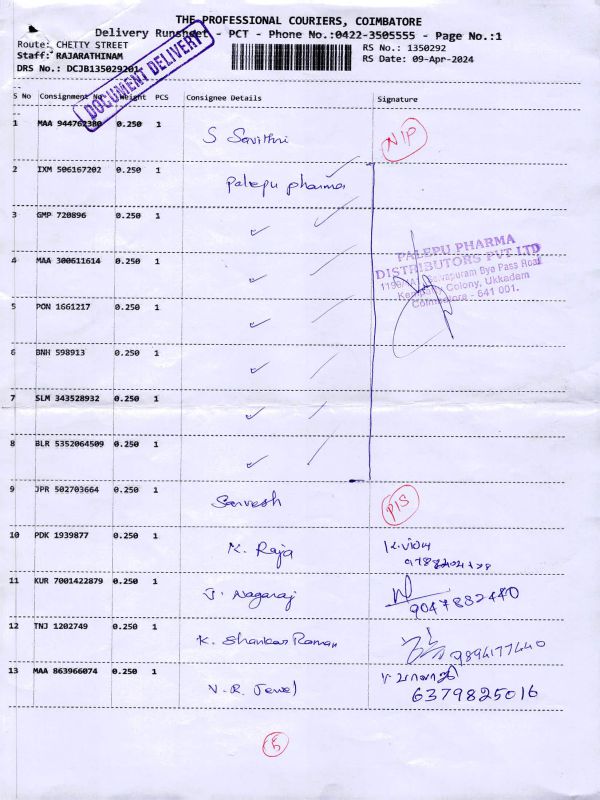 THE PROFESSIONAL COURIERS, COIMBATORE
Delivery Runsheet - PCT - Phone No.:0422-3505555 - Page No.:1
Route: CHETTY STREET
RS No.: 1350292
Staff: RAJARATHINAM
RS Date: 09-Apr-2024
DRS No.: DCJB135029201
DOCUMENT DELIVERY
S No Consignment No Weight PCS Consignee Details Signature
1 MAA 944762380 0.250 1 S Savithri N/P
2 IXM 506167202 0.250 1 Palepu pharma
3 GMP 720896 0.250 1 ✓
PALEPU PHARMA
DISTRIBUTORS PVT LTD
Bye Pass Road
Colony, Ukkadam
Coimbatore - 641 001.
4 MAA 300611614 0.250 1 ✓
5 PON 1661217 0.250 1 ✓
6 BNH 598913 0.250 1 ✓
7 SLM 343528932 0.250 1 ✓
8 BLR 5352064509 0.250 1 ✓
9 JPR 502703664 0.250 1 Sarvesh P/S
10 PDK 1939877 0.250 1 K. Raja
11 KUR 7001422879 0.250 1 J. Nagaraj 9047882480
12 TNJ 1202749 0.250 1 K. Shankar Raman 9894177440
13 MAA 863966074 0.250 1 V.R. Jewel
6379825016
5